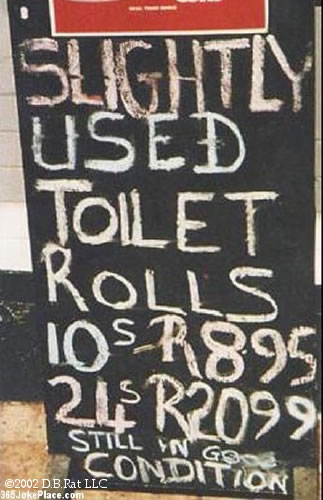 SLIGHTLY
USED
TOILET
ROLLS
10s R8.95
24s R2099
STILL IN GOOD
CONDITION
©2002 D.B.Rat LLC
365JokePlace.com